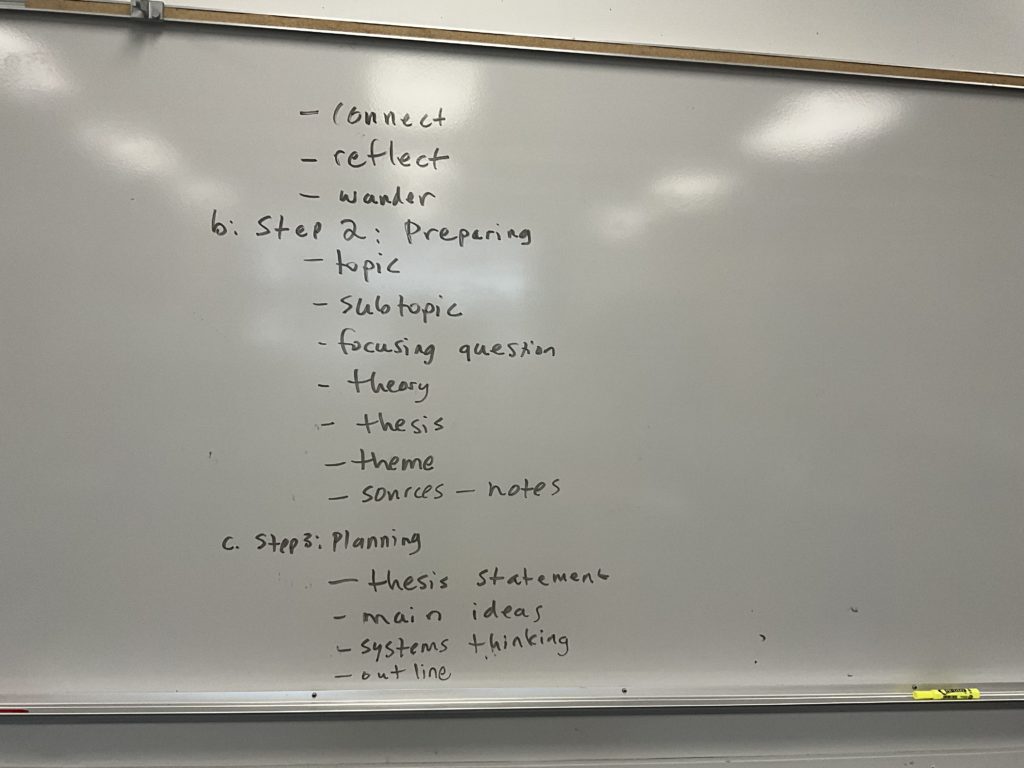 - connect
- reflect
- wander
b: Step 2: Preparing
- topic
- subtopic
- focusing question
- theory
- thesis
- theme
- sources - notes
c. Step 3: Planning
- thesis statement
- main ideas
- systems thinking
- outline